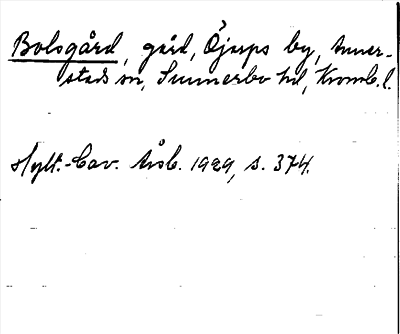 Bolsgård, gård, Öjarps by, Anner-
stads sn, Sunnerbo hd, Kronob. l.
Hylt.-Cav. Årsb. 1929, s. 374.